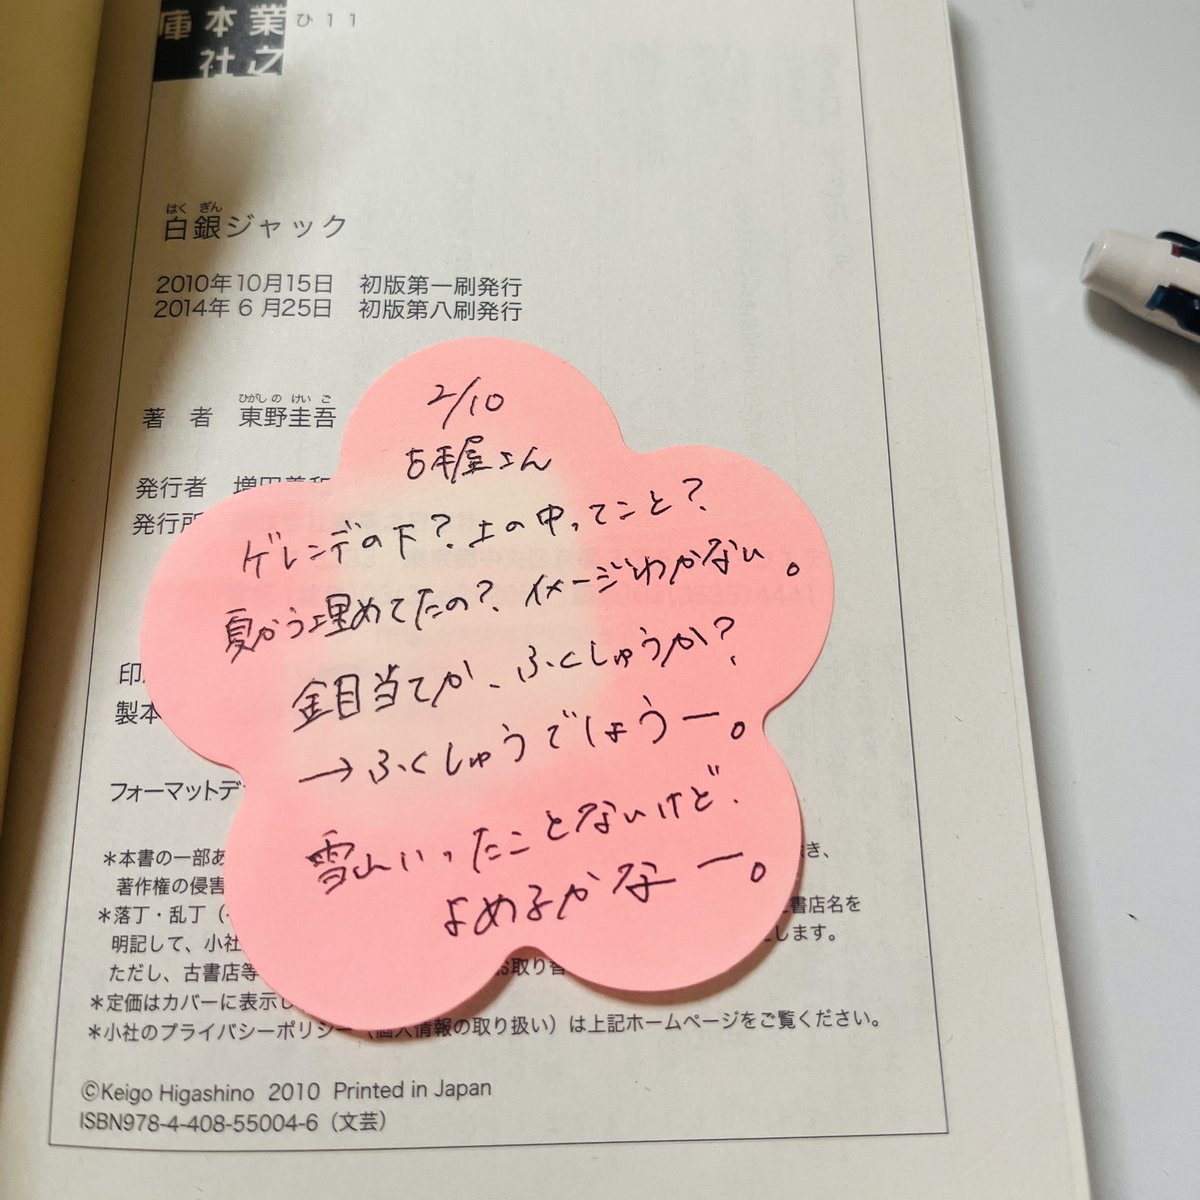 庫本業
社之
ひ11
はくぎん
白銀ジャック
2010年10月15日 初版第一刷発行
2014年6月25日 初版第八刷発行
ひがしの けいご
著 者 東野圭吾
発行者 増田義和
発行所
印
製本
フォーマットデ
*本書の一部あ
著作権の侵害
*落丁・乱丁(
書店名を
明記して、小社
します。
ただし、古書店等
お取り替
*定価はカバーに表示し
*小社のプライバシーポリシー(個人情報の取り扱い)は上記ホームページをご覧ください。
©Keigo Higashino 2010 Printed in Japan
ISBN978-4-408-55004-6(文芸)
2/10
古本屋さん
ゲレンデの下?土の中ってこと?
夏から埋めてたの?イメージわかない。
金目当てか、ふくしゅうか?
→ふくしゅうでしょうー。
雪山いったことないけど、
よめるかなー。